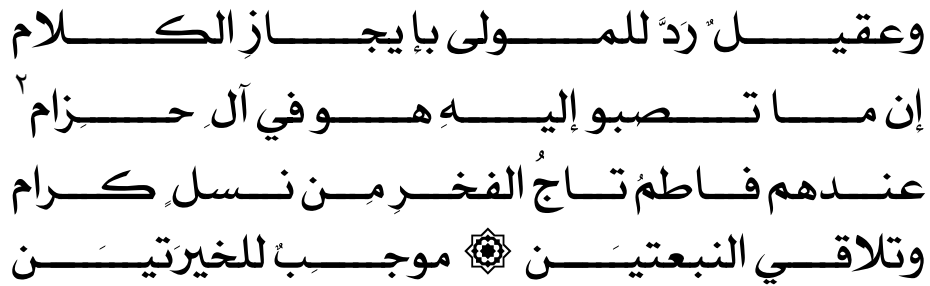 وعقيلٌ رَدَّ للمولى بإيجازِ الكلام
إن ما تصبو إليهِ هو في آلِ حِزام٢
عندهم فاطمُ تاجُ الفخرِ مِن نسلٍ كرام
وتلاقي النبعتيَن ۞ موجِبٌ للخيرَتيَن